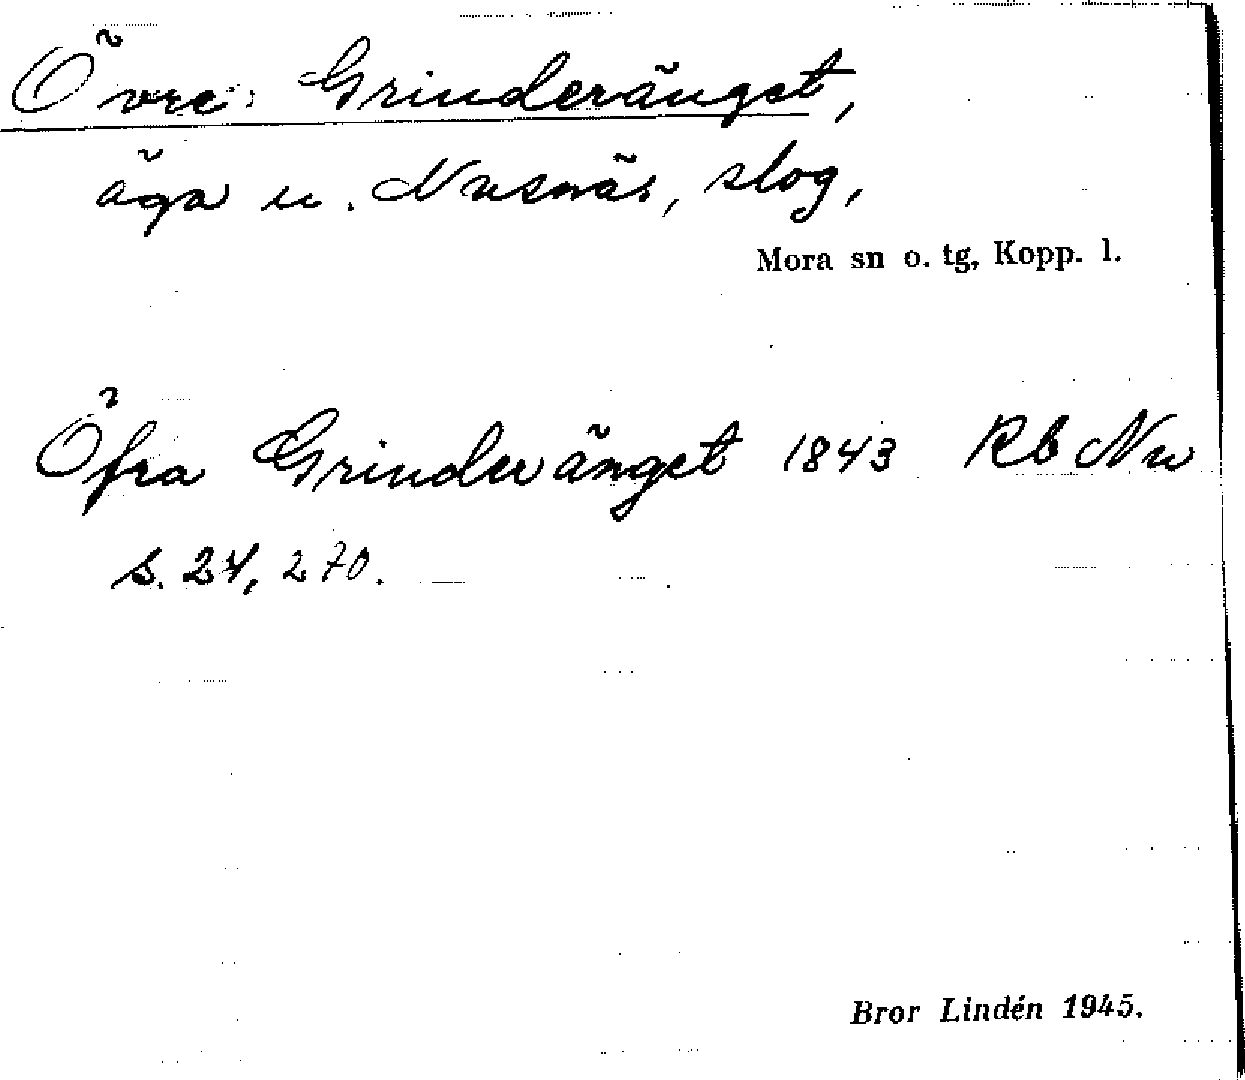 Övre Grinderänget,
äga u. Nusnäs, slog,
Mora sn o. tg, Kopp. l.
Öfra Grinderänget 1843 Rb Nu
s. 24, 270.
Bror Lindén 1945.